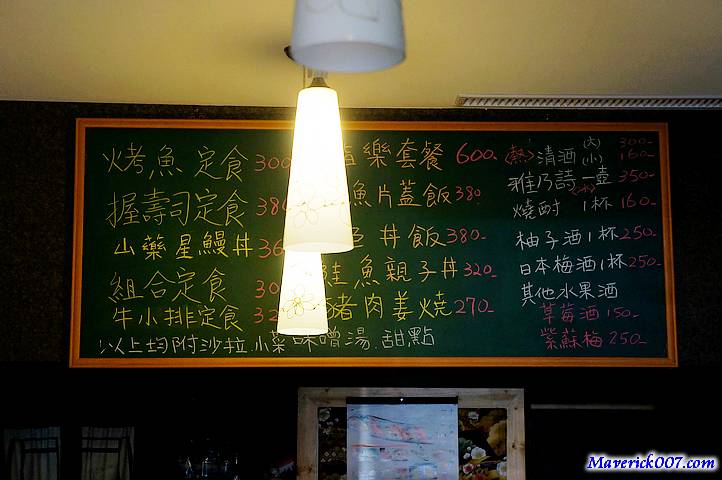 烤魚定食 300
握壽司定食 38
山藥星鰻丼 3
組合定食 30
牛小排定食 32
樂套餐 600
魚片蓋飯 380
丼飯 380-
鮭魚親子丼 320
豬肉姜燒 270-
以上均附沙拉.小菜味噌湯.甜點
(熱)清酒 (大) 300-
(小) 160-
雅乃詩一壺 350-
燒酎 1杯 160-
柚子酒1杯 250-
日本梅酒1杯 250-
其他水果酒
草莓酒 150-
紫蘇梅 250-
Maverick007.com